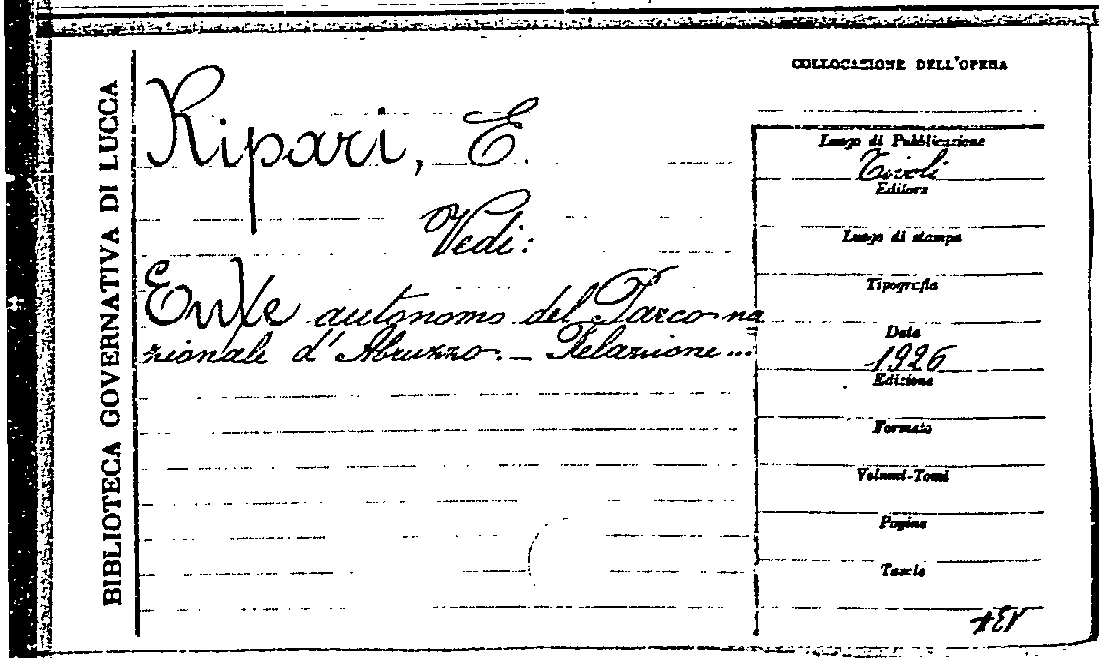 BIBLIOTECA GOVERNATIVA DI LUCCA
Ripari, E.
Vedi:
Ente autonomo del Parco na
zionale d'Abruzzo. _ Relazione...
COLLOCAZIONE DELL'OPERA
Luogo di Pubblicazione
Tivoli
Editore
Luogo di stampa
Tipografia
Data
1926
Edizione
Formato
Volumi-Tomi
Pagine
Tavole